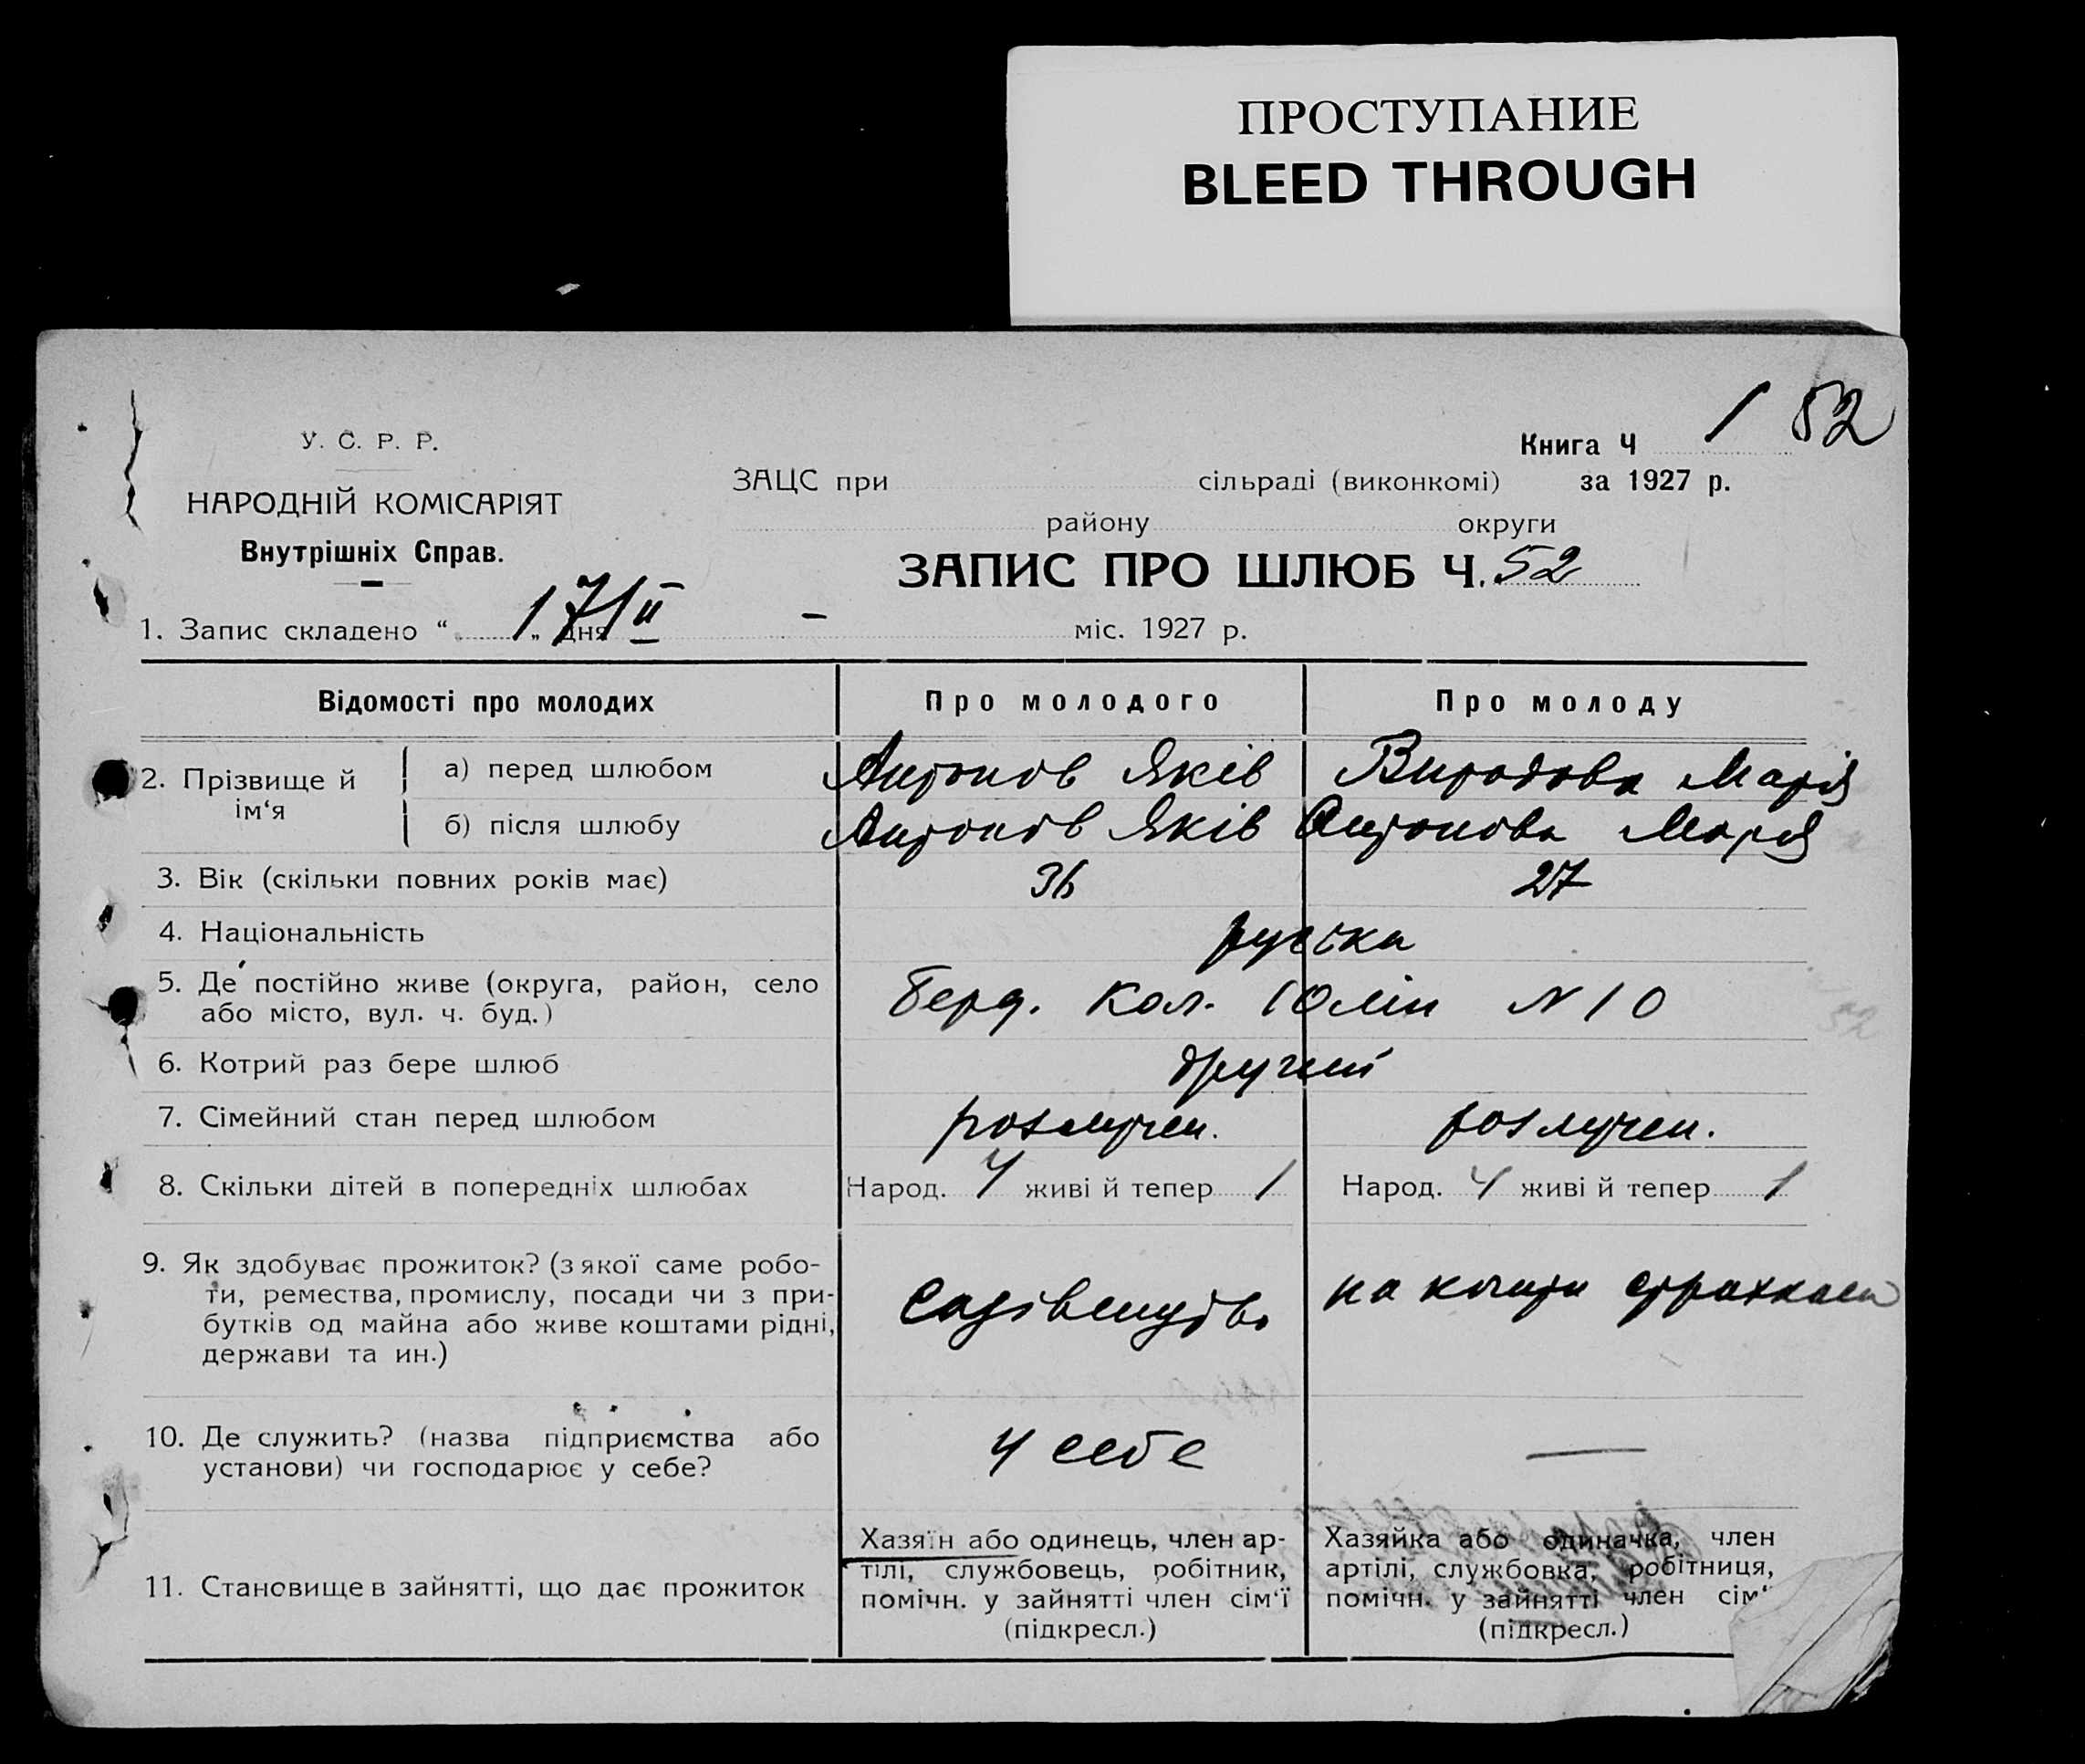 ПРОСТУПАНИЕ
BLEED THROUGH
1 52
У. С. Р. Р.
Книга Ч
ЗАЦС при сільраді (виконкомі) за 1927 р.
НАРОДНІЙ КОМІСАРІЯТ
району округи
Внутрішніх Справ.
ЗАПИС ПРО ШЛЮБ Ч. 52
1. Запис складено “ 17/II „ дня — міс. 1927 р.
Відомості про молодих Про молодого Про молоду
2. Прізвище й ім‘я
а) перед шлюбом Антонов Яків Виродова Марія
б) після шлюбу Антонов Яків Антонова Марія
3. Вік (скільки повних років має) 36 27
4. Національність руська
5. Де постійно живе (округа, район, село
або місто, вул. ч. буд.) Берд. Кол. N 10
6. Котрий раз бере шлюб другий
7. Сімейний стан перед шлюбом розлучен. розлучен.
8. Скільки дітей в попередніх шлюбах Народ. 4 живі й тепер 1 Народ. 4 живі й тепер 1
9. Як здобуває прожиток? (з якої саме робо-
ти, ремества, промислу, посади чи з при-
бутків од майна або живе коштами рідні,
держави та ин.)
Садівництво
на кошти
10. Де служить? (назва підприємства або
установи) чи господарює у себе?
у себе —
11. Становище в зайнятті, що дає прожиток
Хазяїн або одинець, член ар-
тілі, службовець, робітник,
помічн. у зайнятті член сім‘ї
(підкресл.)
Хазяйка або одиначка, член
артілі, службовка, робітниця,
помічн. у зайнятті член сім‘
(підкресл.)